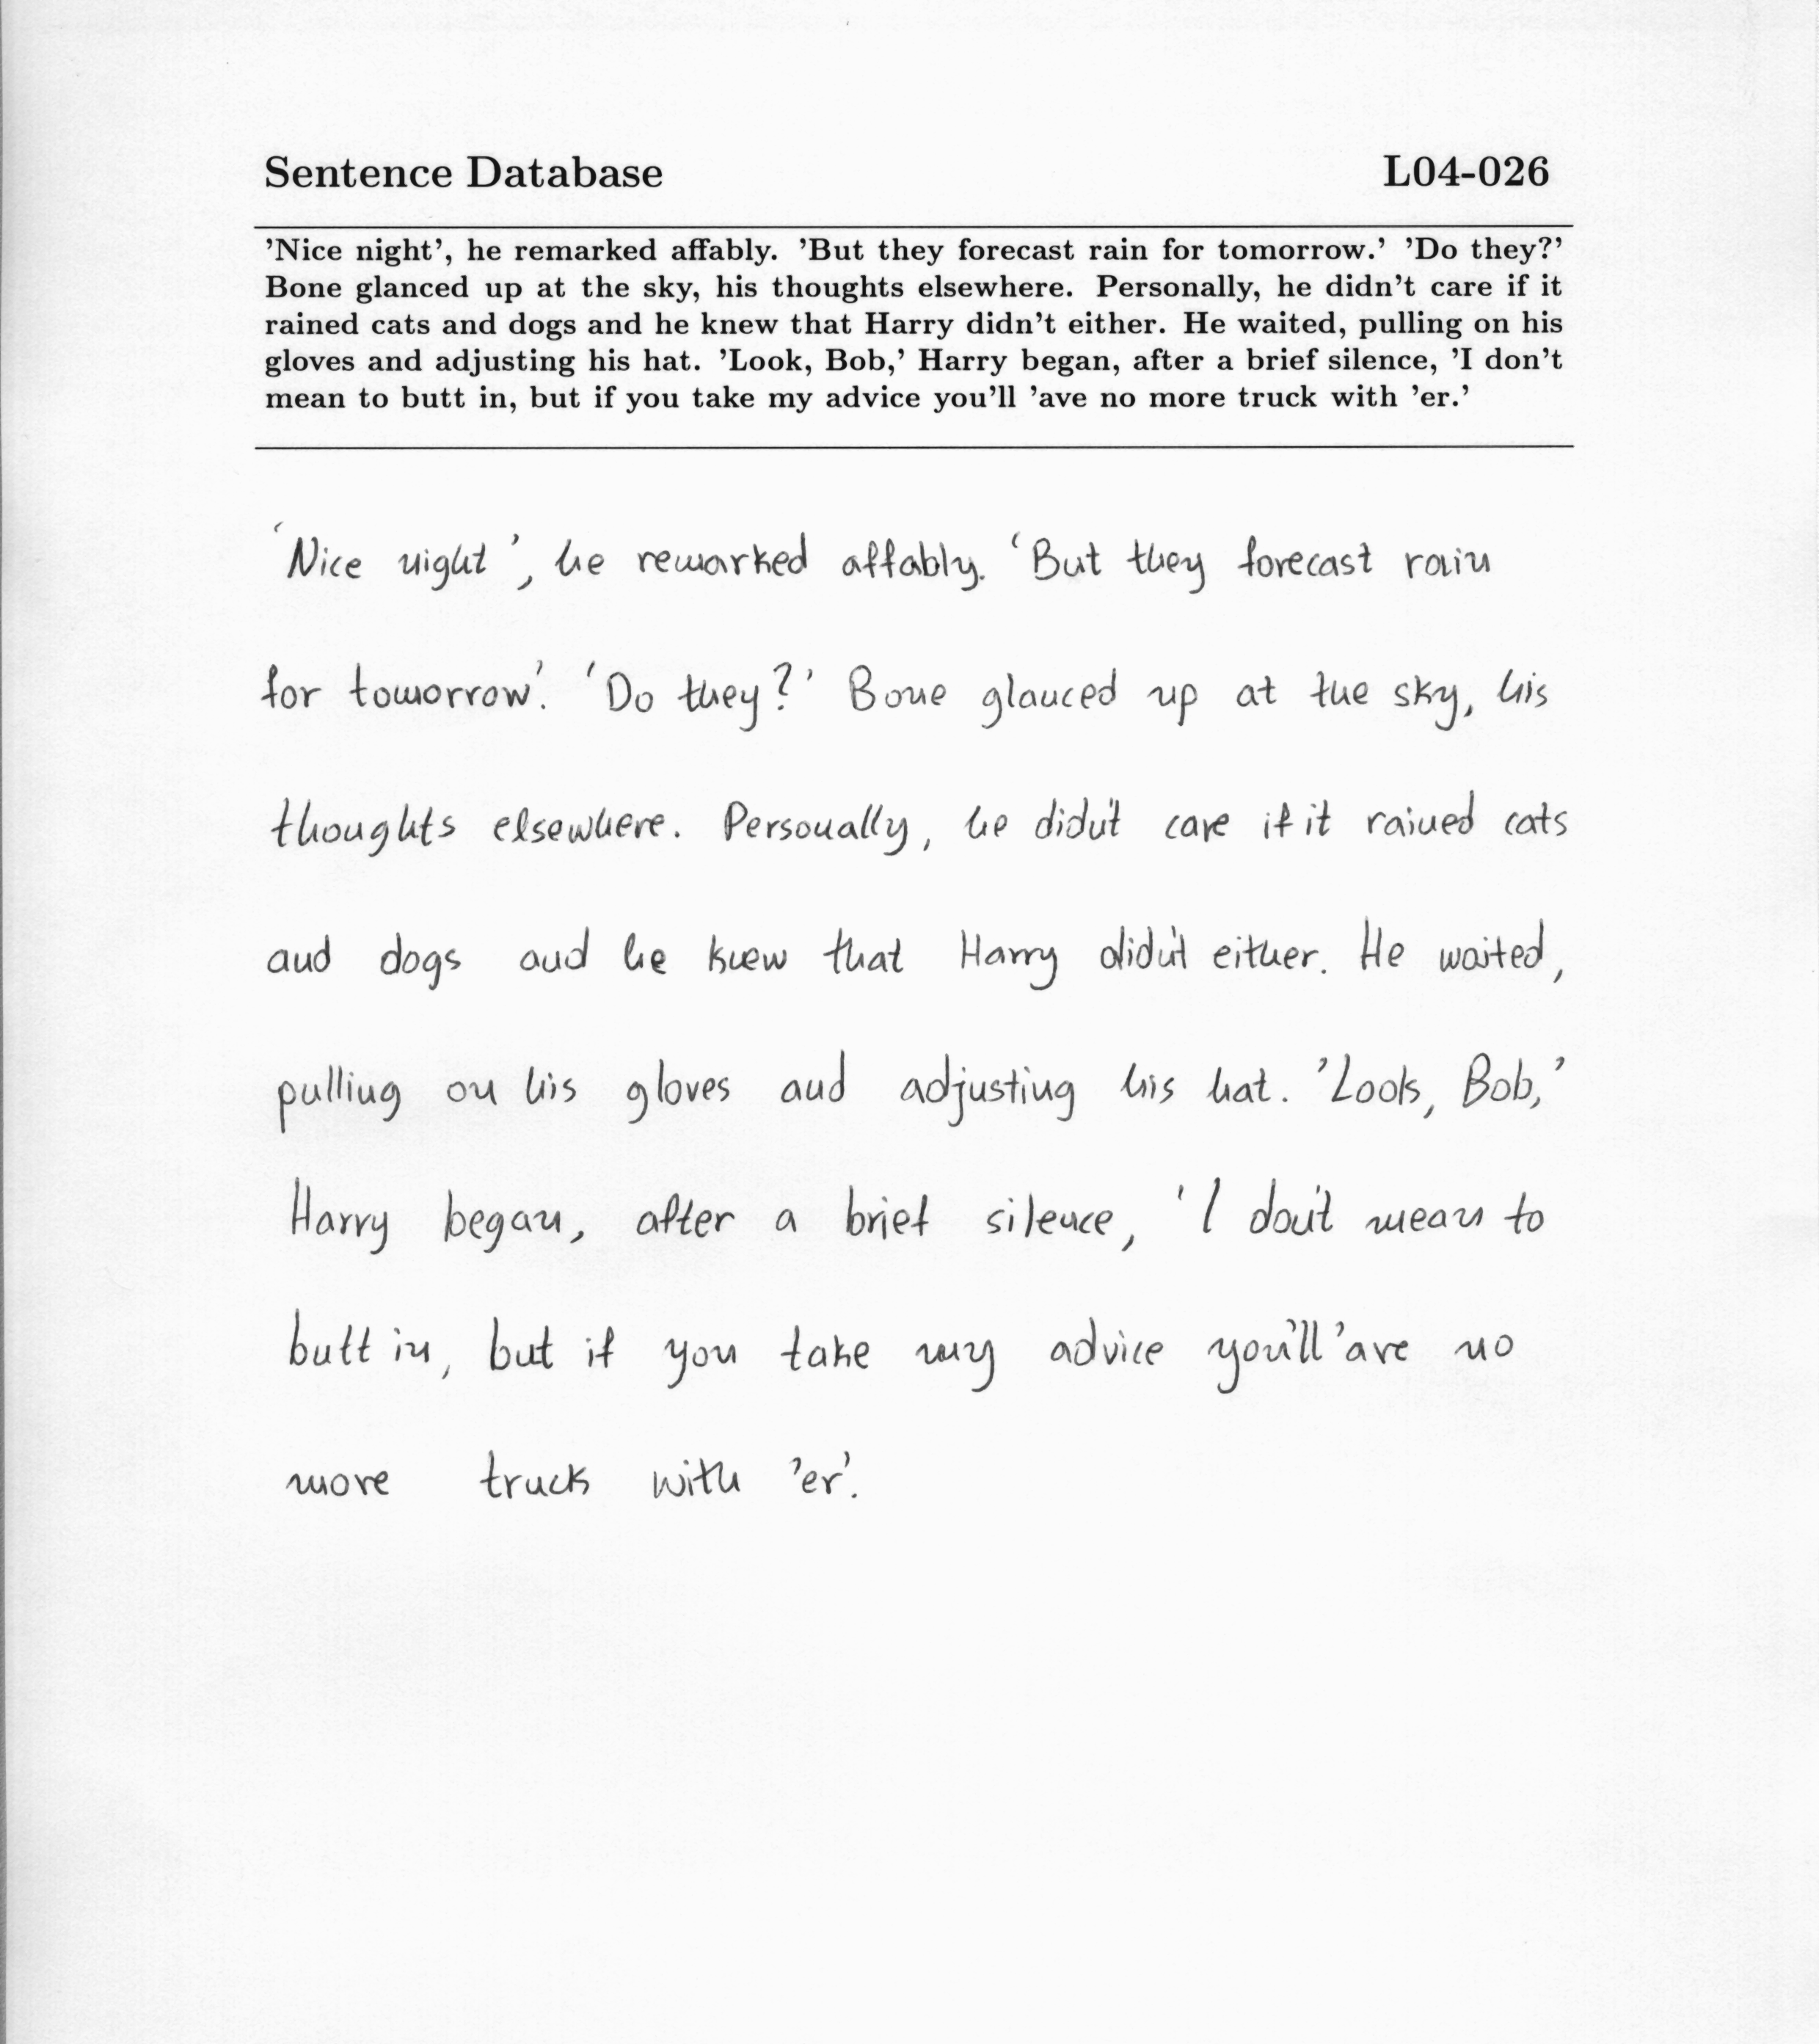 Sentence Database L04-026
'Nice night', he remarked affably. 'But they forecast rain for tomorrow.' 'Do they?'
Bone glanced up at the sky, his thoughts elsewhere. Personally, he didn't care if it
rained cats and dogs and he knew that Harry didn't either. He waited, pulling on his
gloves and adjusting his hat. 'Look, Bob,' Harry began, after a brief silence, 'I don't
mean to butt in, but if you take my advice you'll 'ave no more truck with 'er.'
'Nice night', he remarked affably. 'But they forecast rain
for tomorrow'. 'Do they?' Bone glanced up at the sky, his
thoughts elsewhere. Personally, he didn't care if it rained cats
and dogs and he knew that Harry didn't either. He waited,
pulling on his gloves and adjusting his hat. 'Look, Bob,'
Harry began, after a brief silence, 'I don't mean to
butt in, but if you take my advice you'll 'ave no
more truck with 'er'.